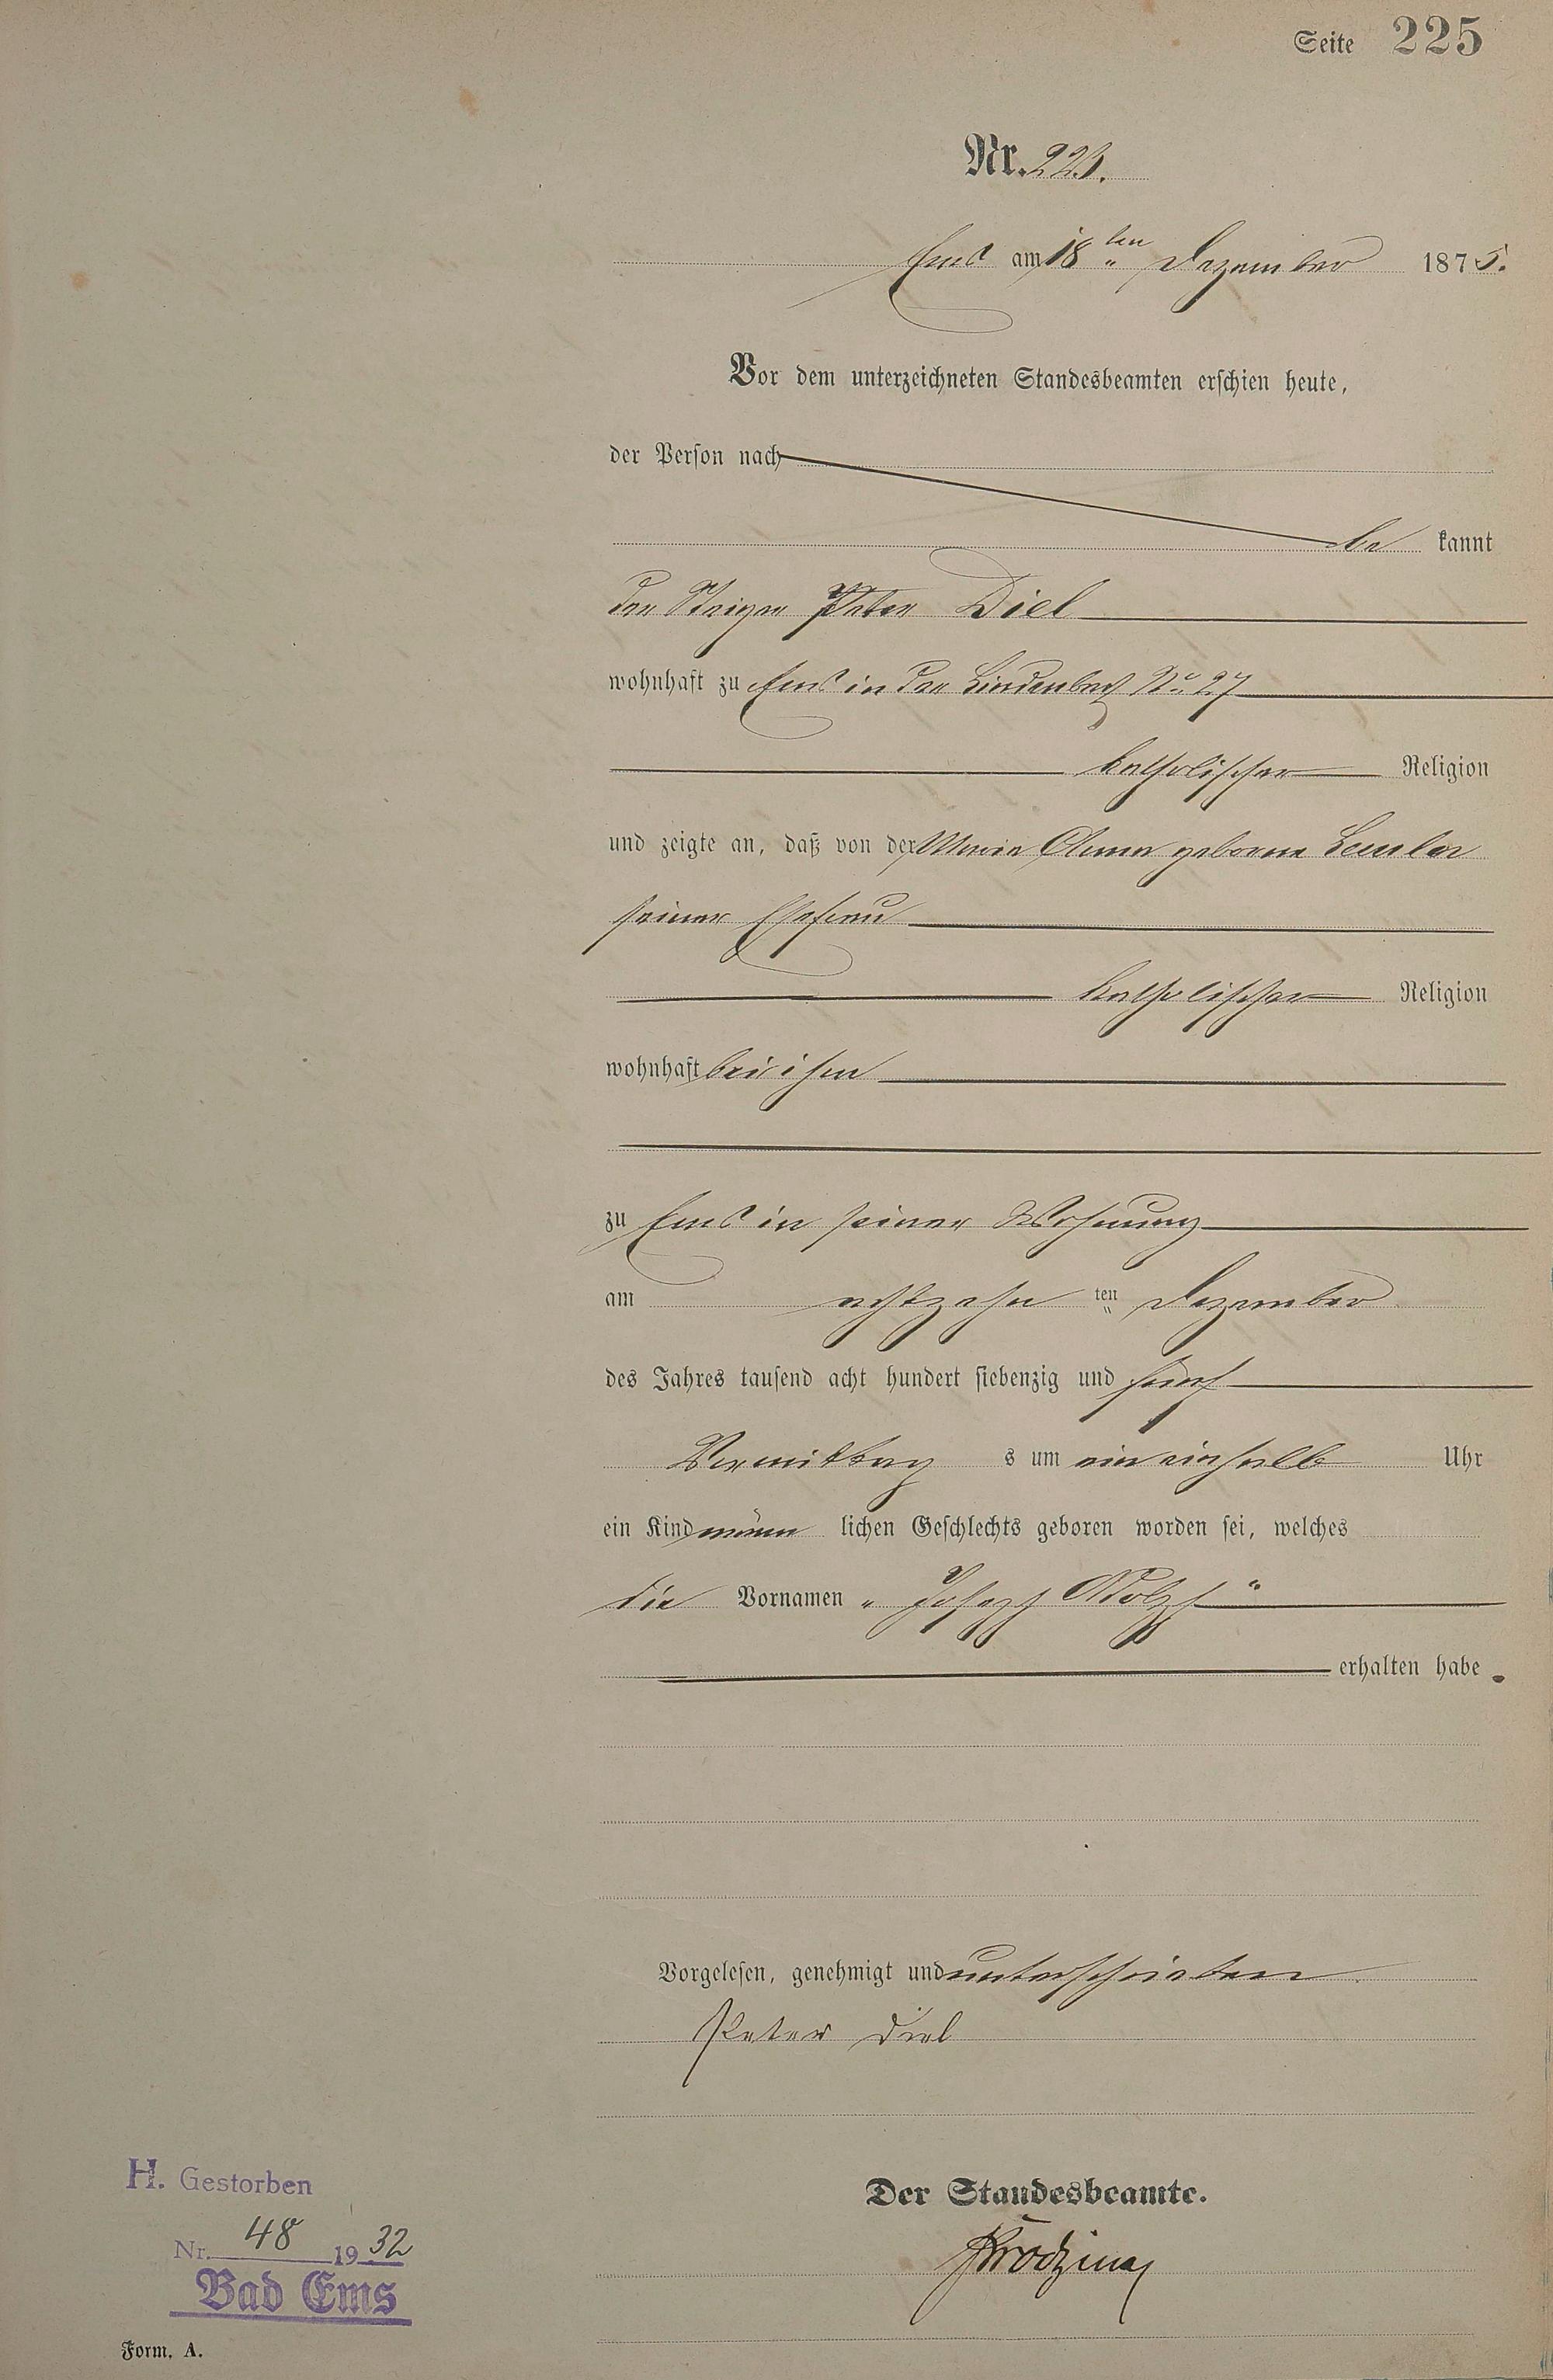 Seite 225
Nr. 223.
Ems am 18ten Dezember 1875.
Vor dem unterzeichneten Standesbeamten erschien heute,
der Person nach
be kannt
der Steiger Peter Diel
wohnhaft zu Ems in der Lindenbach No. 27
katholischer Religion
und zeigte an, daß von der Maria Anna geborne
seiner Ehefrau
katholischer Religion
wohnhaft bei ihm
zu Ems in seiner Wohnung
am achtzehn ten Dezember
des Jahres tausend acht hundert siebenzig und fünf
Vormittag s um ein einhalb Uhr
ein Kind männ lichen Geschlechts geboren worden sei, welches
die Vornamen „Joseph Adolph“
erhalten habe.
Vorgelesen, genehmigt und unterschrieben
Peter Diel
Der Standesbeamte.
H. Gestorben
Nr. 48 1932
Bad Ems
Form. A.